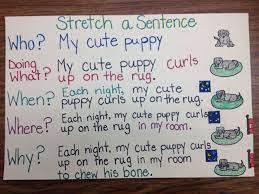 Stretch a Sentence
Who? My cute puppy
Doing What? My cute puppy curls
up on the rug.
When? Each night, my cute
puppy curls up on the rug.
Where? Each night, my cute puppy curls
up on the rug in my room.
Why? Each night, my cute puppy curls
up on the rug in my room
to chew his bone.